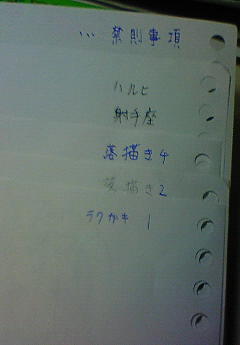 … 禁則事項
ハルヒ
射手座
落描き4
落描き2
ラクガキ 1